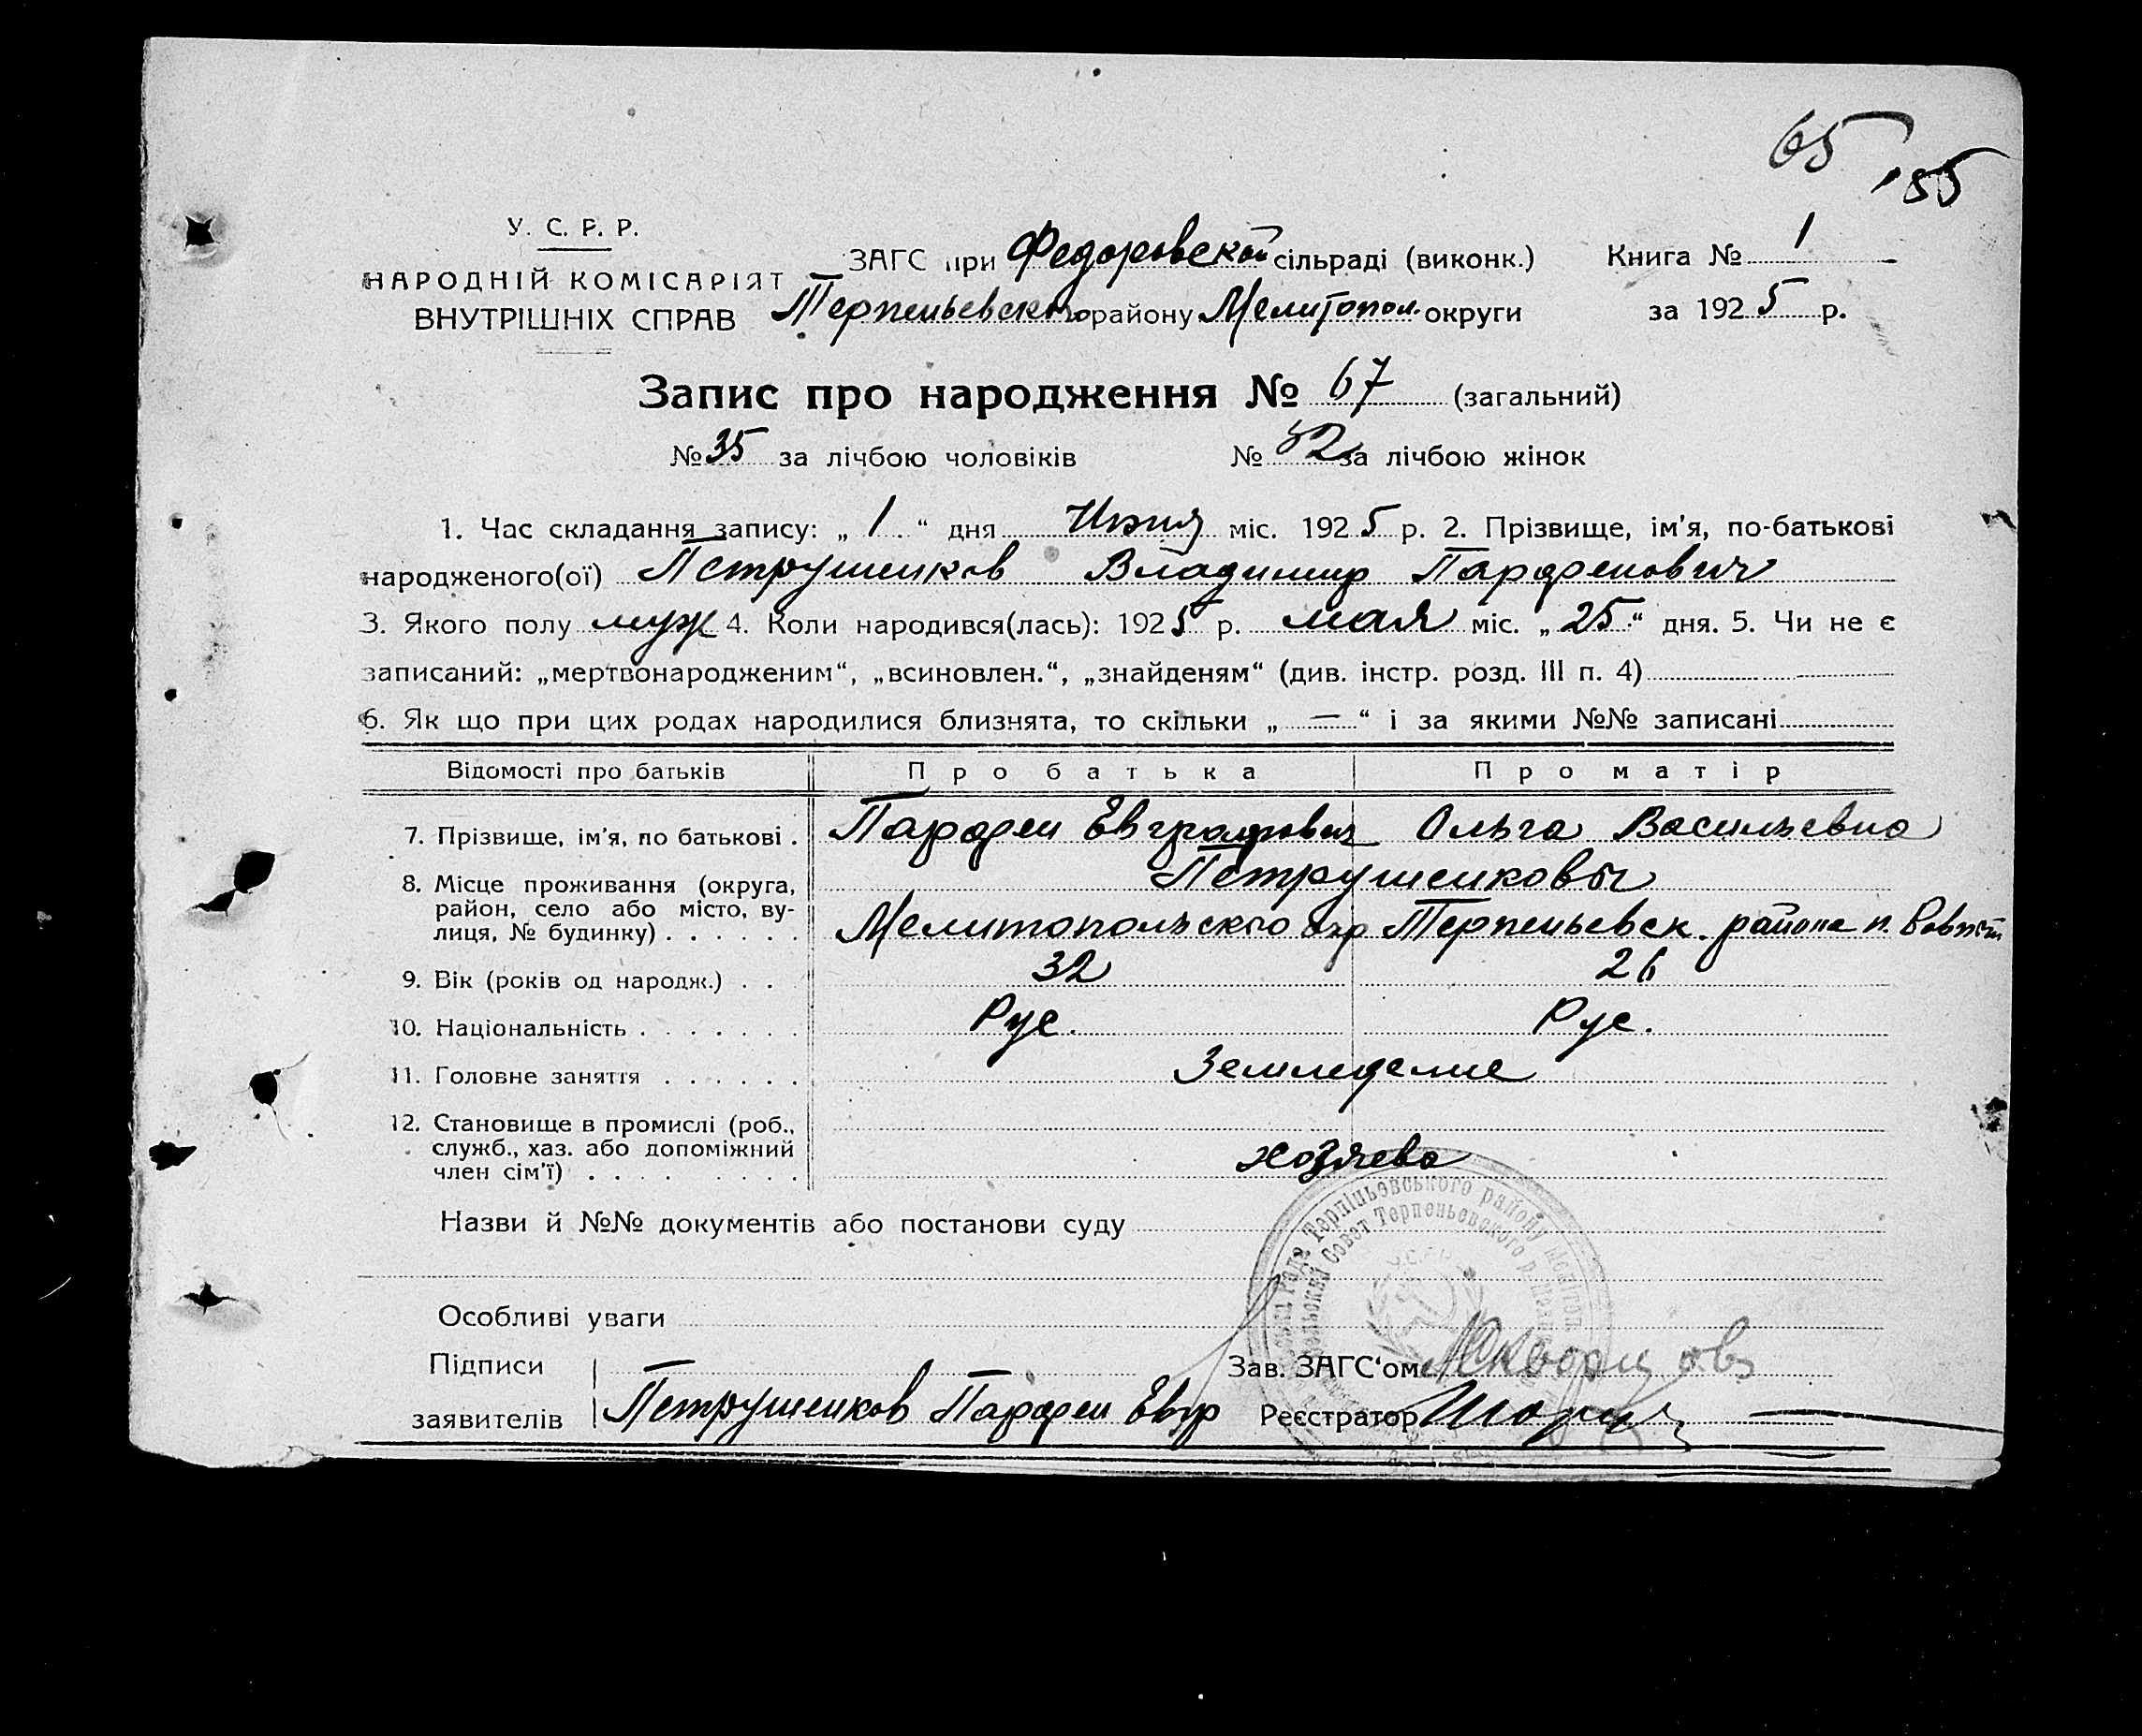 65
155
У. С. Р. Р.
НАРОДНІЙ КОМІСАРІЯТ
ВНУТРІШНІХ СПРАВ
ЗАГС при Федоровской сільраді (виконк.) Книга № 1
Терпеньевского району Мелитопол. округи за 1925 р.
Запис про народження № 67 (загальний)
№ 35 за лічбою чоловіків № 32 за лічбою жінок
1. Час складання запису: „ 1 “ дня Июня міс. 1925 р. 2. Прізвище, ім'я, по-батькові
народженого(ої) Петрушенков Владимир Парфенович
3. Якого полу муж 4. Коли народився(лась): 1925 р. мая міс. „ 25 “ дня. 5. Чи не є
записаний: „мертвонародженим“, „всиновлен.“, „знайденям“ (див. інстр. розд. III п. 4)
6. Як що при цих родах народилися близнята, то скільки „ — “ і за якими №№ записані
Відомості про батьків Про батька Про матір
7. Прізвище, ім'я, по батькові . Парфен Евграфович Ольга Васильевна
Петрушенковы
8. Місце проживання (округа,
район, село або місто, ву-
лиця, № будинку) . . . . . . Мелитопольского окр Терпеньевск. района п.
9. Вік (років од народж.) . . 32 26
10. Національність . . . . . . . Рус. Рус.
11. Головне заняття . . . . . . Земледелие
12. Становище в промислі (роб.,
служб., хаз. або допоміжний
член сім'ї) . . . . . . . . хозяева
Назви й №№ документів або постанови суду
Особливі уваги
Підписи Зав. ЗАГС‘ом Скворцов
заявителів Петрушенков Парфен Евгр Реєстратор
Рада Терпіньевського району Мелітоп.
Совет Терпеньевского р.